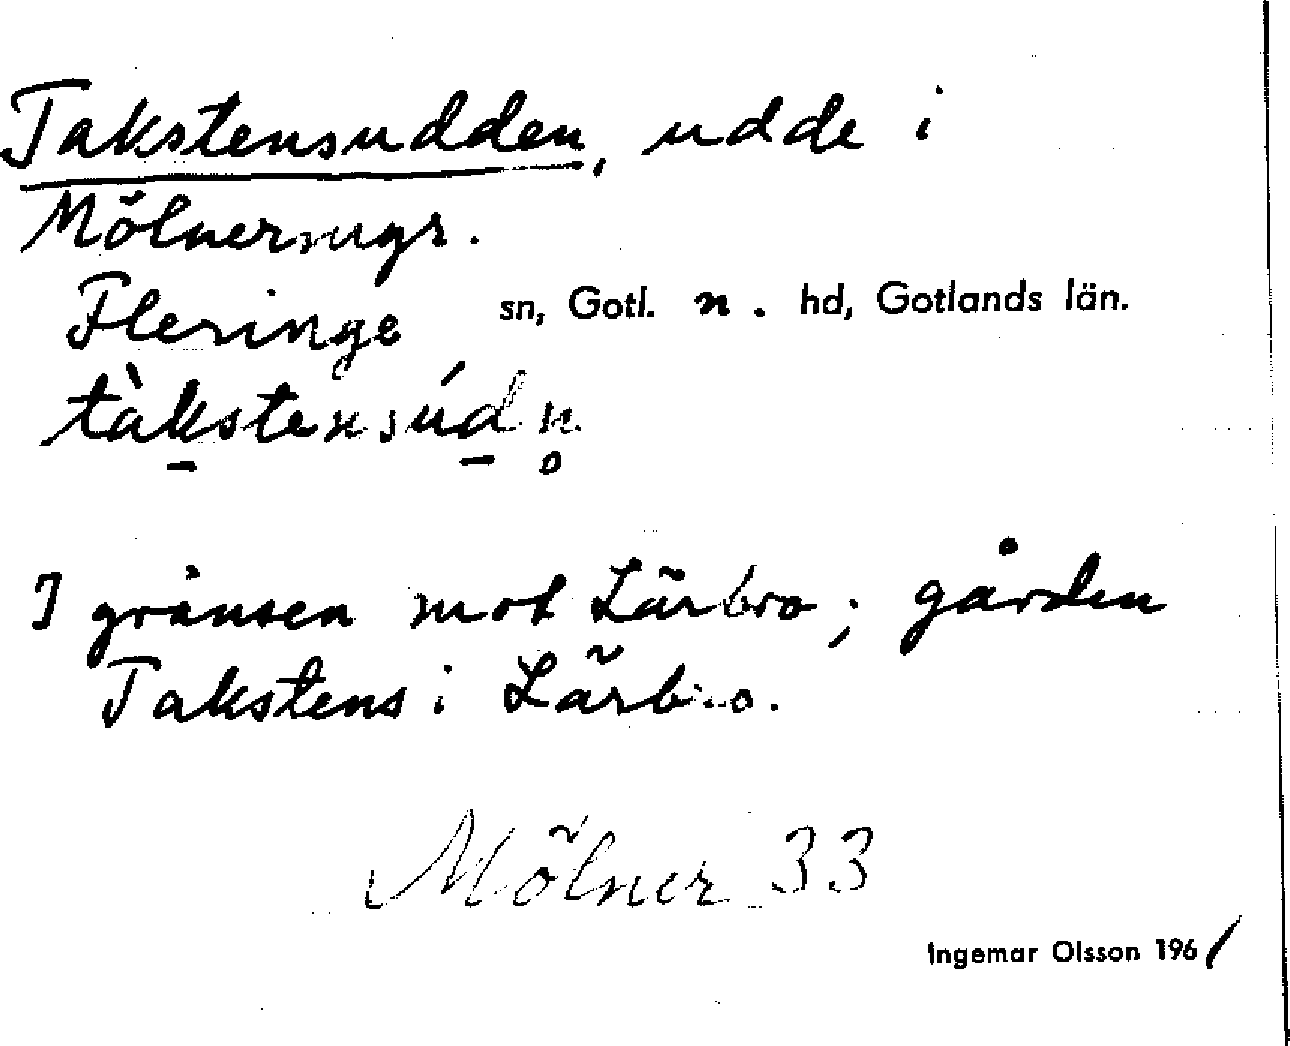 Takstensudden, udde i
Mölnermyr.
Fleringe sn, Gotl. n. hd, Gotlands län.
tàkstensúdn̥
I gränsen mot Lärbro; gården
Takstens i Lärbro.
Mölner 33
Ingemar Olsson 1961